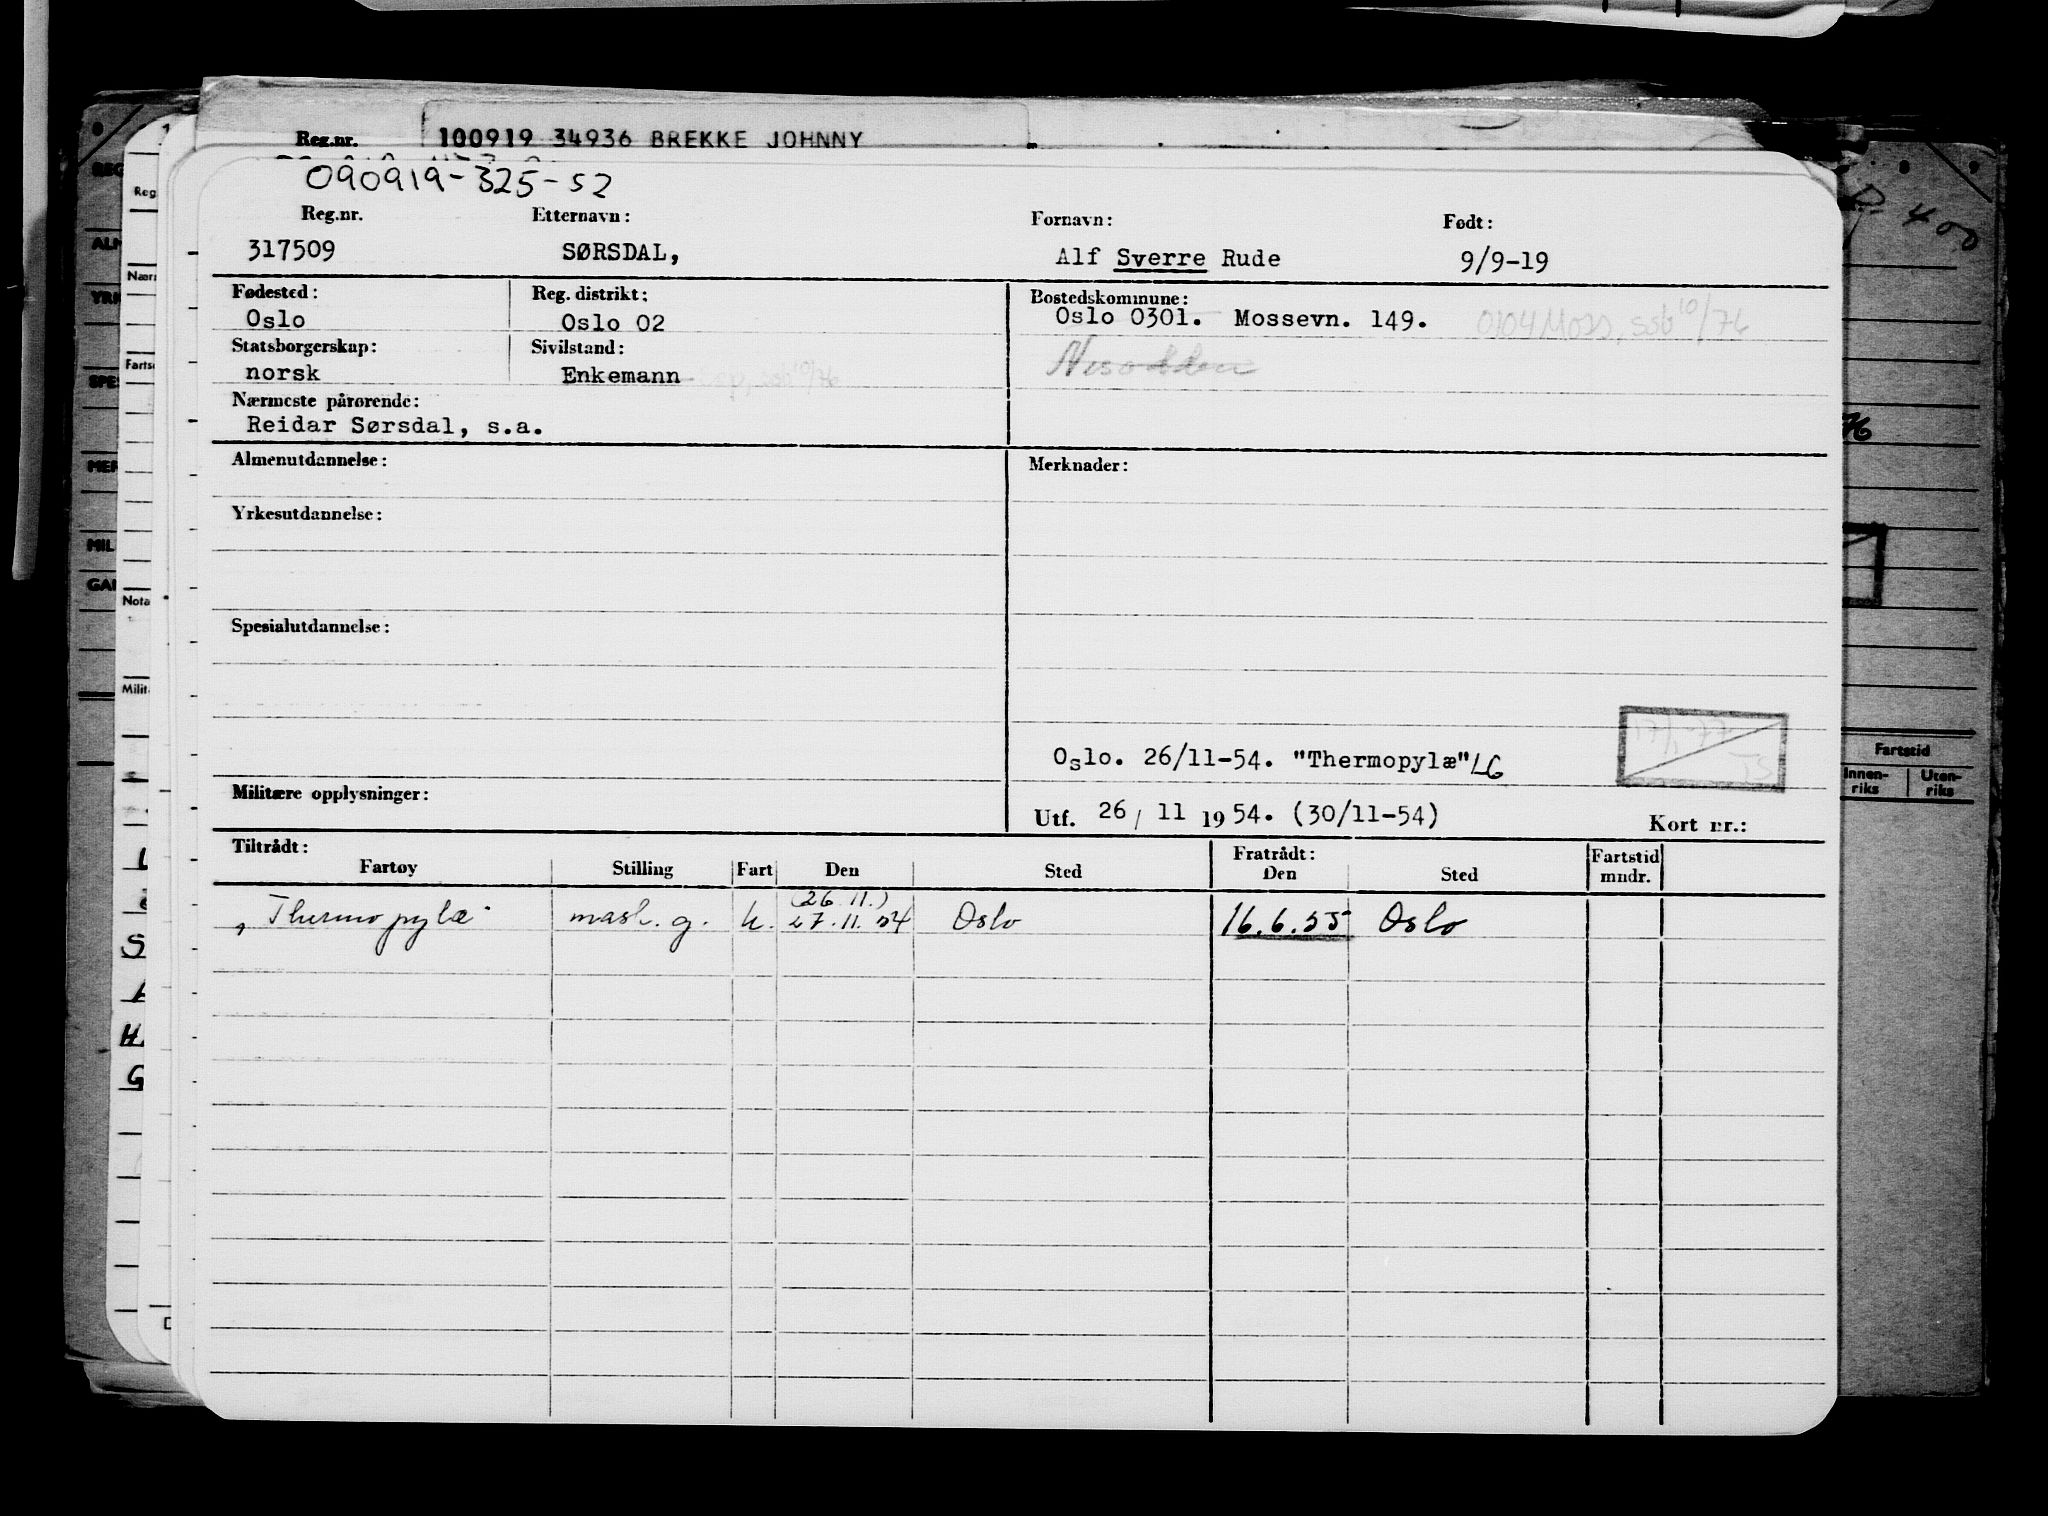 Reg.nr. 100919 34936 BREKKE JOHNNY
090919-325-52
Reg.nr. Etternavn: Fornavn: Født:
317509 SØRSDAL, Alf Sverre Rude 9/9-19
Fødested: Reg. distrikt: Bostedskommune:
Oslo Oslo 02 Oslo 0301. Mossevn. 149. 0104 Moss, ssb 10/76
Statsborgerskap: Sivilstand: Nesodden
norsk Enkemann
Nærmeste pårørende:
Reidar Sørsdal, s.a.
Almenutdannelse: Merknader:
Yrkesutdannelse:
Spesialutdannelse:
17/1-77
JS
Oslo. 26/11-54. "Thermopylæ" LG
Militære opplysninger:
Utf. 26/11 1954. (30/11-54) Kort nr.:
Tiltrådt: Fratrådt: Fartstid
Fartøy Stilling Fart Den Sted Den Sted mndr.
(26.11.)
"Thermopylæ" mask.g. u. 27.11.54 Oslo 16.6.55 Oslo
Fartstid
Innen-
riks
Uten-
riks